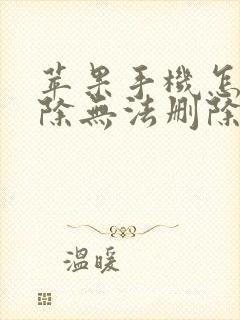 苹果手機怎
除無法删除
溫暖